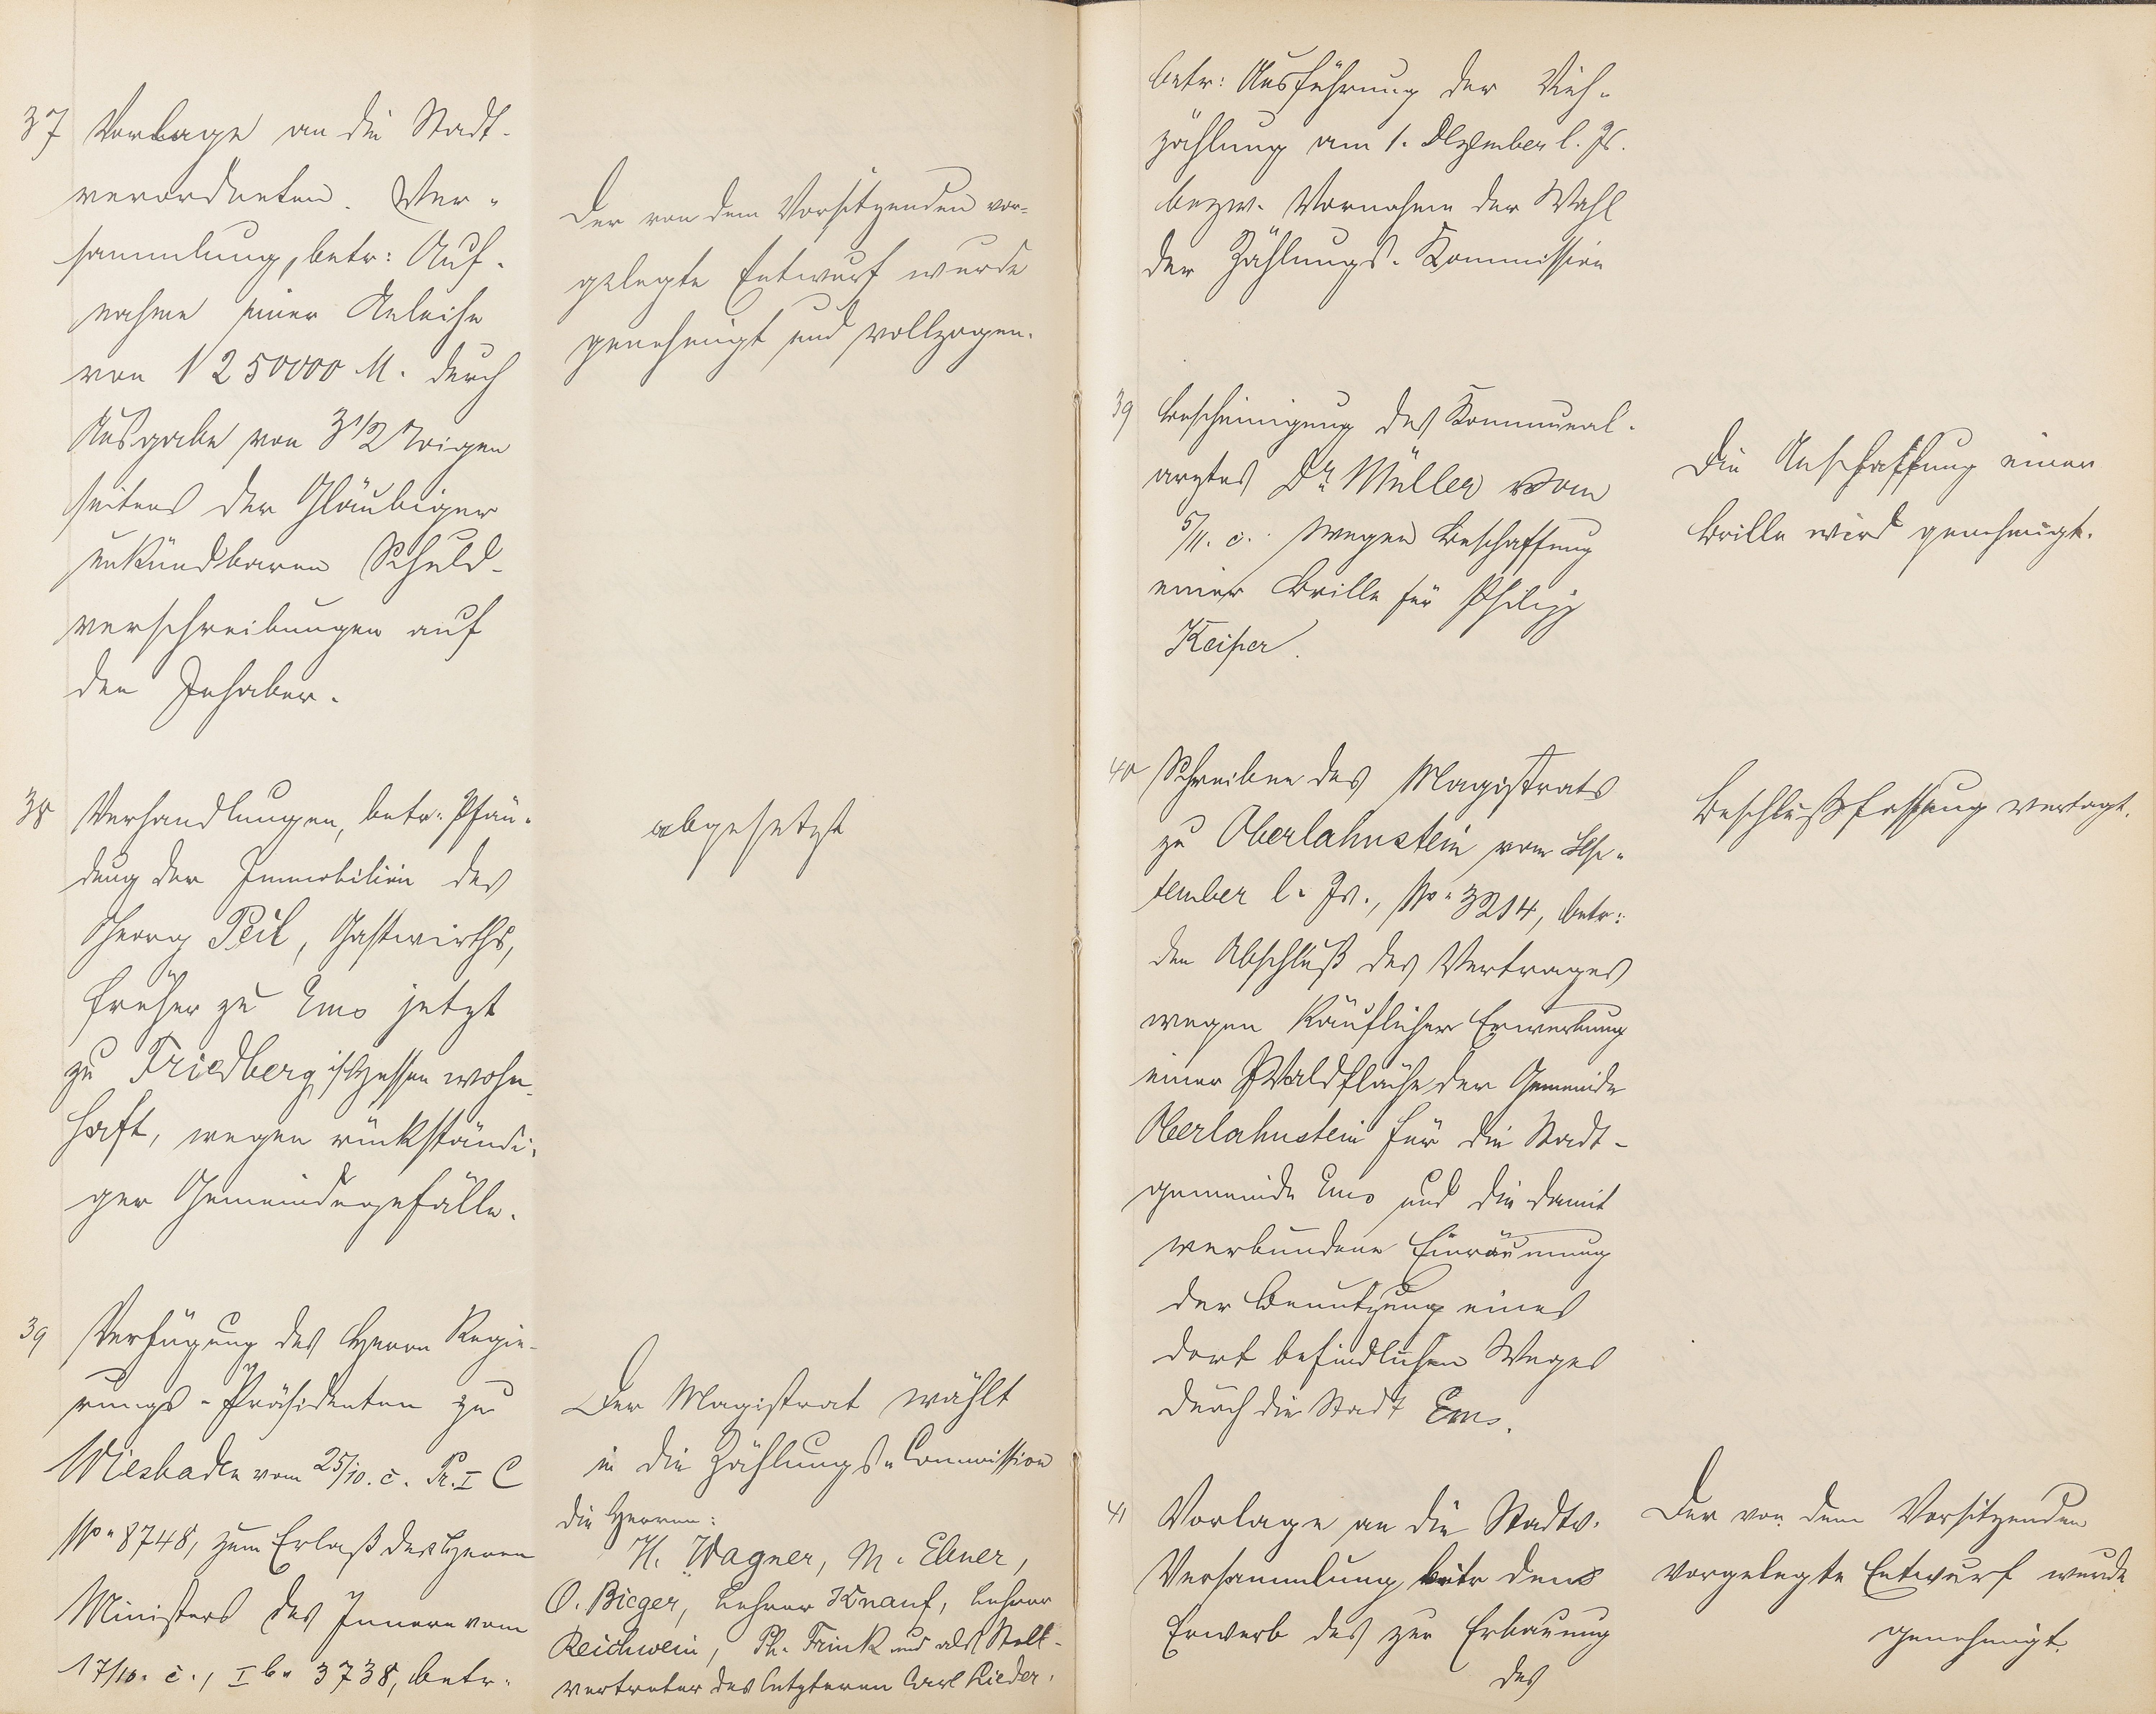 37 Vorlage an die Stadt-
verordneten. Ver-
sammlung, betr: Auf-
nahme einer Anleihe
von 1250000 M. durch
Ausgabe von 3 1/2 %igen
seitens der Gläubiger
unkündbaren Schuld-
verschreibungen auf
den Inhaber.
Der von dem Vorsitzenden vor-
gelegte Entwurf wurde
genehmigt und vollzogen.
38 Verhandlungen, betr. Pfän-
dung der Immobilien des
Georg Peil, Gastwirths,
früher zu Ems jetzt
zu Friedberg i/Hessen wohn-
haft, wegen rückständi-
ger Gemeindegefälle.
abgesetzt
39 Verfügung des Herrn Regie-
rungs-Präsidenten zu
Wiesbaden vom 25/10. c. Pr. I C
No 8748, zum Erlaß des Herrn
Ministers des Innern vom
17/10. c., I b. 3738, betr.
Der Magistrat wählt
in die Zählungs-Commission
die Herren:
H. Wagner, M. Ebner,
O. Bieger, Lehrer Knauf, Lehrer
Reichwein, Ph. Frink und als Stell-
vertreter des letzteren Carl Rieder.
betr: Ausführung der Vieh-
zählung am 1. Dezember l. Js.
bezw. Vornahme der Wahl
der Zählungs-Kommission
39 Bescheinigung des Kommunal-
arztes Dr Müller vom
5/11. c. wegen Beschaffung
einer Brille für Philipp
Keiper.
Die Anschaffung einer
Brille wird genehmigt.
40 Schreiben des Magistrats
zu Oberlahnstein vom Sep-
tember l. Js., No 3214, betr:
den Abschluß des Vertrages
wegen käuflicher Erwerbung
einer Waldfläche der Gemeinde
Oberlahnstein für die Stadt-
gemeinde Ems und die damit
verbundene Einräumung
der Benutzung eines
dort befindlichen Weges
durch die Stadt Ems.
Beschlußfassung vertagt.
41 Vorlage an die Stadtv.
Versammlung betr den
Erwerb des zur Erbauung
des
Der von dem Vorsitzenden
vorgelegte Entwurf wurde
genehmigt.